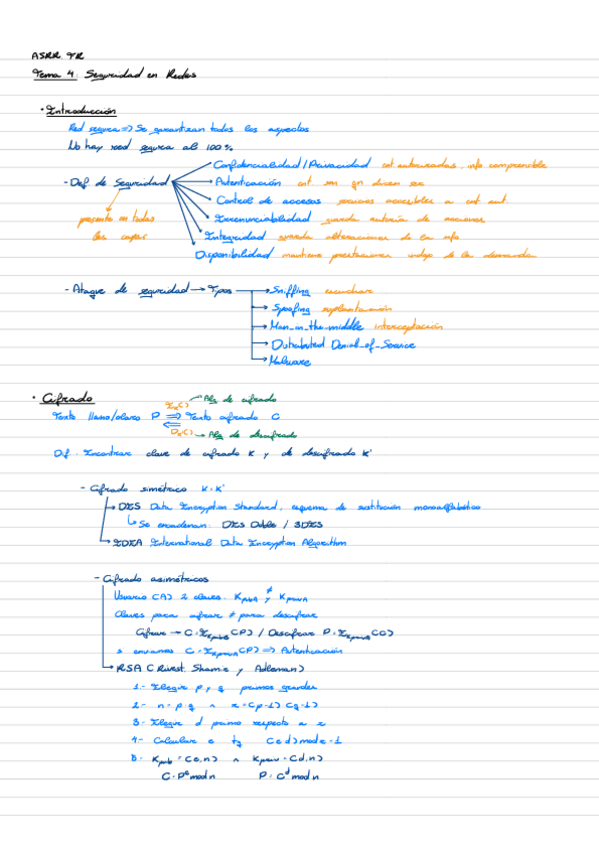 ASRR TR
Tema 4: Seguridad en Redes
· Introducción
Red segura => Se garantizan todos los aspectos
No hay red segura al 100%
- Def de Seguridad
presente en todas
las capas
Confidencialidad / Privacidad ent autorizadas, info comprensible
Autenticación ent son qn dicen ser
Control de accesos servicios accesibles a ent aut.
Irrenunciabilidad guarda autoría de acciones
Integridad guarda alteraciones de la info
Disponibilidad mantiene prestaciones indep de la demanda
- Ataque de seguridad → Tipos → Sniffing escuchar
→ Spoofing suplantación
→ Man_in_the_middle intercepción
→ Distributed Denial_of_Service
→ Malware
· Cifrado
EK() → Alg de cifrado
Texto llano/claro P ⇒ Texto cifrado C
DK() → Alg de descifrado
Dif. Encontrar clave de cifrado K y de descifrado K'
- Cifrado simétrico K=K'
→ DES Data Encryption Standard, esquema de sustitución monoalfabético
↳ Se encadenan: DES Doble / 3DES
→ IDEA International Data Encryption Algorithm
- Cifrado asimétricos
Usuario (A) 2 claves: KpubA ≠ y KprivA
Claves para cifrar ≠ para descifrar
Cifrar → C=EKpubB(P) / Descifrar P=EKprivB(C)
enviamos C=EKprivA(P) => Autenticación
→ RSA (Rivest, Shamir y Adleman)
1- Elegir p y q primos grandes
2- n=p·q ∧ z=(p-1)(q-1)
3- Elegir d primo respecto a z
4- Calcular e tq (e·d)modz=1
5- Kpub=(e,n) ∧ Kpriv=(d,n)
C=P^e mod n P=C^d mod n